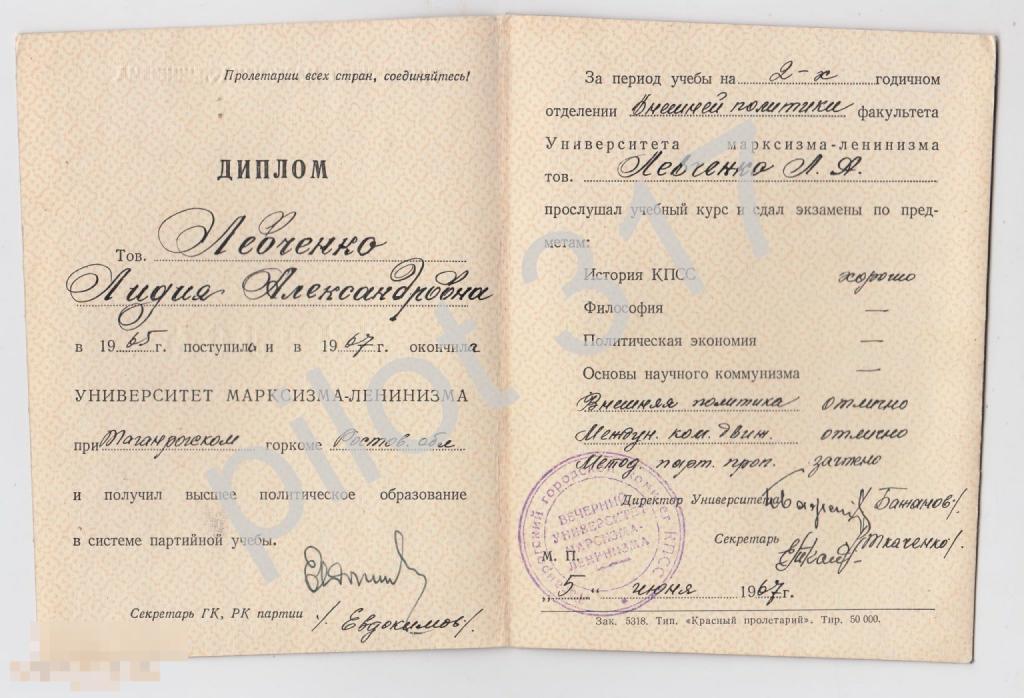 Пролетарии всех стран, соединяйтесь!
ДИПЛОМ
Тов. Левченко
Лидия Александровна
в 1965 г. поступила и в 1967 г. окончила
УНИВЕРСИТЕТ МАРКСИЗМА-ЛЕНИНИЗМА
при Таганрогском горкоме Ростов. обл
и получил высшее политическое образование
в системе партийной учебы.
Секретарь ГК, РК партии /Евдокимов/.
За период учебы на 2-х годичном
отделении Внешней политики факультета
Университета марксизма-ленинизма
тов. Левченко Л. А.
прослушал учебный курс и сдал экзамены по пред-
метам:
История КПСС хорошо
Философия —
Политическая экономия —
Основы научного коммунизма —
Внешняя политика отлично
Междун. ком. движ. отлично
Метод. парт. проп. зачтено
Директор Университета /Бажанов/.
Секретарь /Ткаченко/.
М. П.
„5“ июня 1967 г.
Зак. 5318. Тип. «Красный пролетарий». Тир. 50 000.
городской комитет КПСС
ВЕЧЕРНИЙ
УНИВЕРСИТЕТ
МАРКСИЗМА-
ЛЕНИНИЗМА
pilot 317